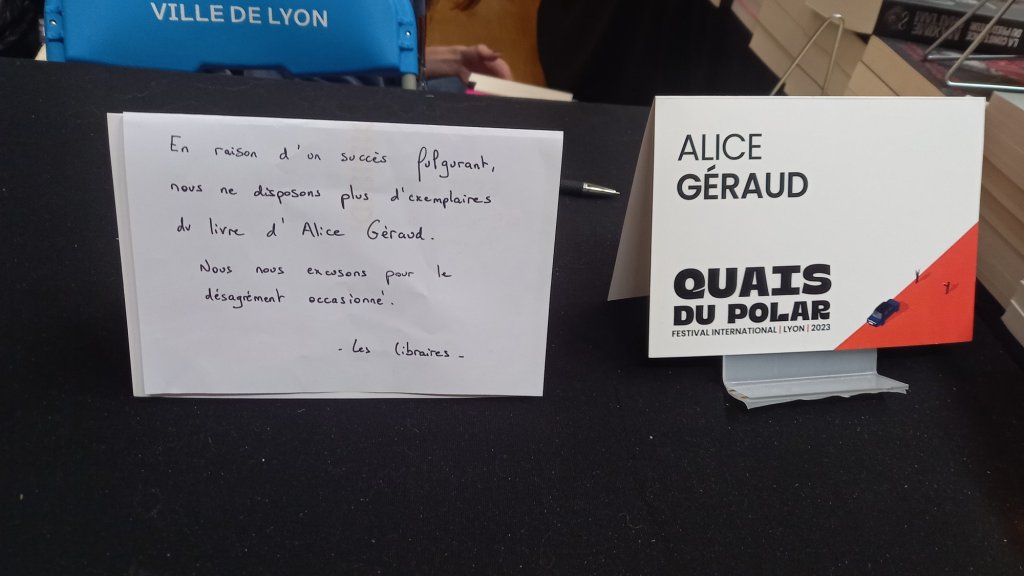 VILLE DE LYON
En raison d'un succès fulgurant,
nous ne disposons plus d'exemplaires
du livre d'Alice Géraud.
Nous nous excusons pour le
désagrément occasionné.
- Les libraires -
ALICE
GÉRAUD
QUAIS
DU POLAR
FESTIVAL INTERNATIONAL | LYON | 2023